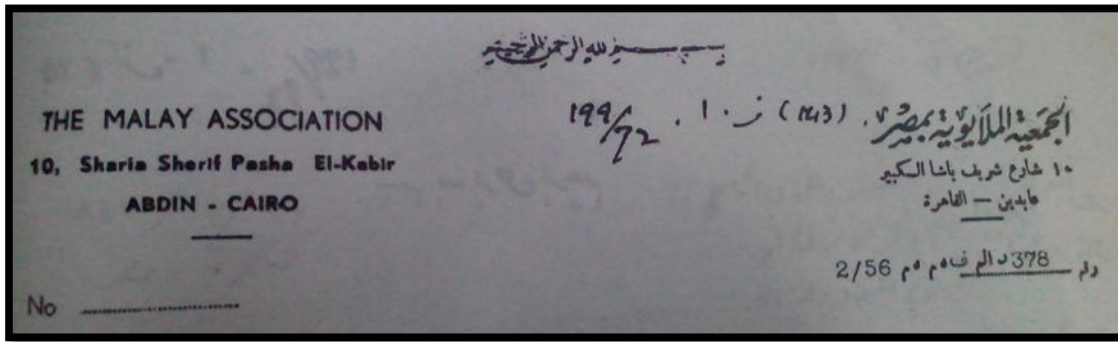 بسم الله الرحمن الرحيم
THE MALAY ASSOCIATION
10, Sharia Sherif Pasha El-Kabir
ABDIN - CAIRO
No
الجمعية الملايوية بمصر. (143) ز. ١٠. 199/72
١٠ شارع شريف باشا الكبير
عابدين — القاهرة
رقم 378 2/56